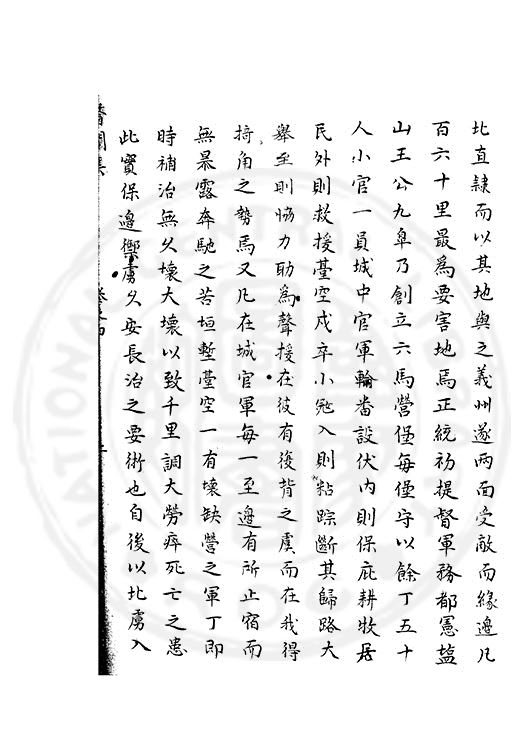 北直隸而以其地與之義州遂两面受敵而緣邉凡
百六十里最爲要害地焉正統初提督軍務都憲盐
山王公九臯乃創立六馬營堡每堡守以餘丁五十
人小官一員城中官軍輪畨設伏内則保庇耕牧居
民外則救援臺空戍卒小冦入則粘踪斷其歸路大
舉至則恊力助爲聲援在彼有後背之虞而在我得
掎角之勢焉又凡在城官軍每一至邉有所止宿而
無暴露奔馳之苦垣塹臺空一有壊缺營之軍丁即
時補治無久壊大壊以致千里調大勞瘁死亡之患
此實保邉禦虜久安長治之要術也自後以北虜入